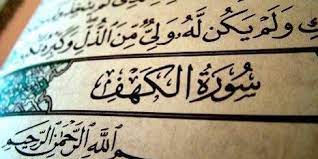 وَلَمْ يَكُن لَّهُۥ وَلِيٌّ مِّنَ ٱلذُّلِّ وَكَبِّرْهُ
سُورَةُ الْكَهْفِ
ٱللَّهِ ٱلرَّحْمَٰنِ ٱلرَّحِيمِ